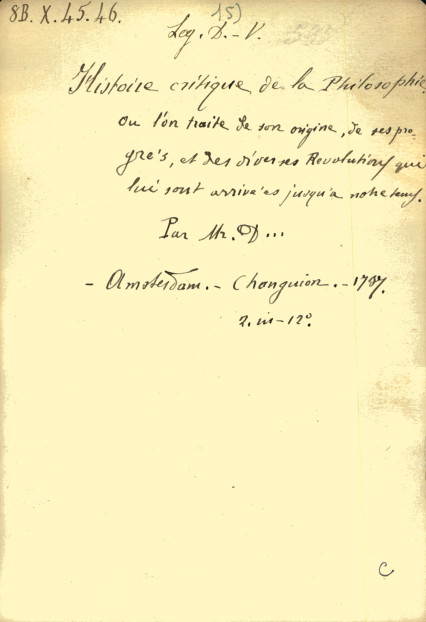 8B. X. 45. 46. 15)
Leg. D. - V.
Histoire critique de la Philosophie
ou l'on traite de son origine, de ses pro-
grés, et des diverses Revolutions qui
lui sont arrivées jusqu'a notre tems.
Par Mr. D...
- Amsterdam. - Changuion. - 1737.
2. in-12°.
C